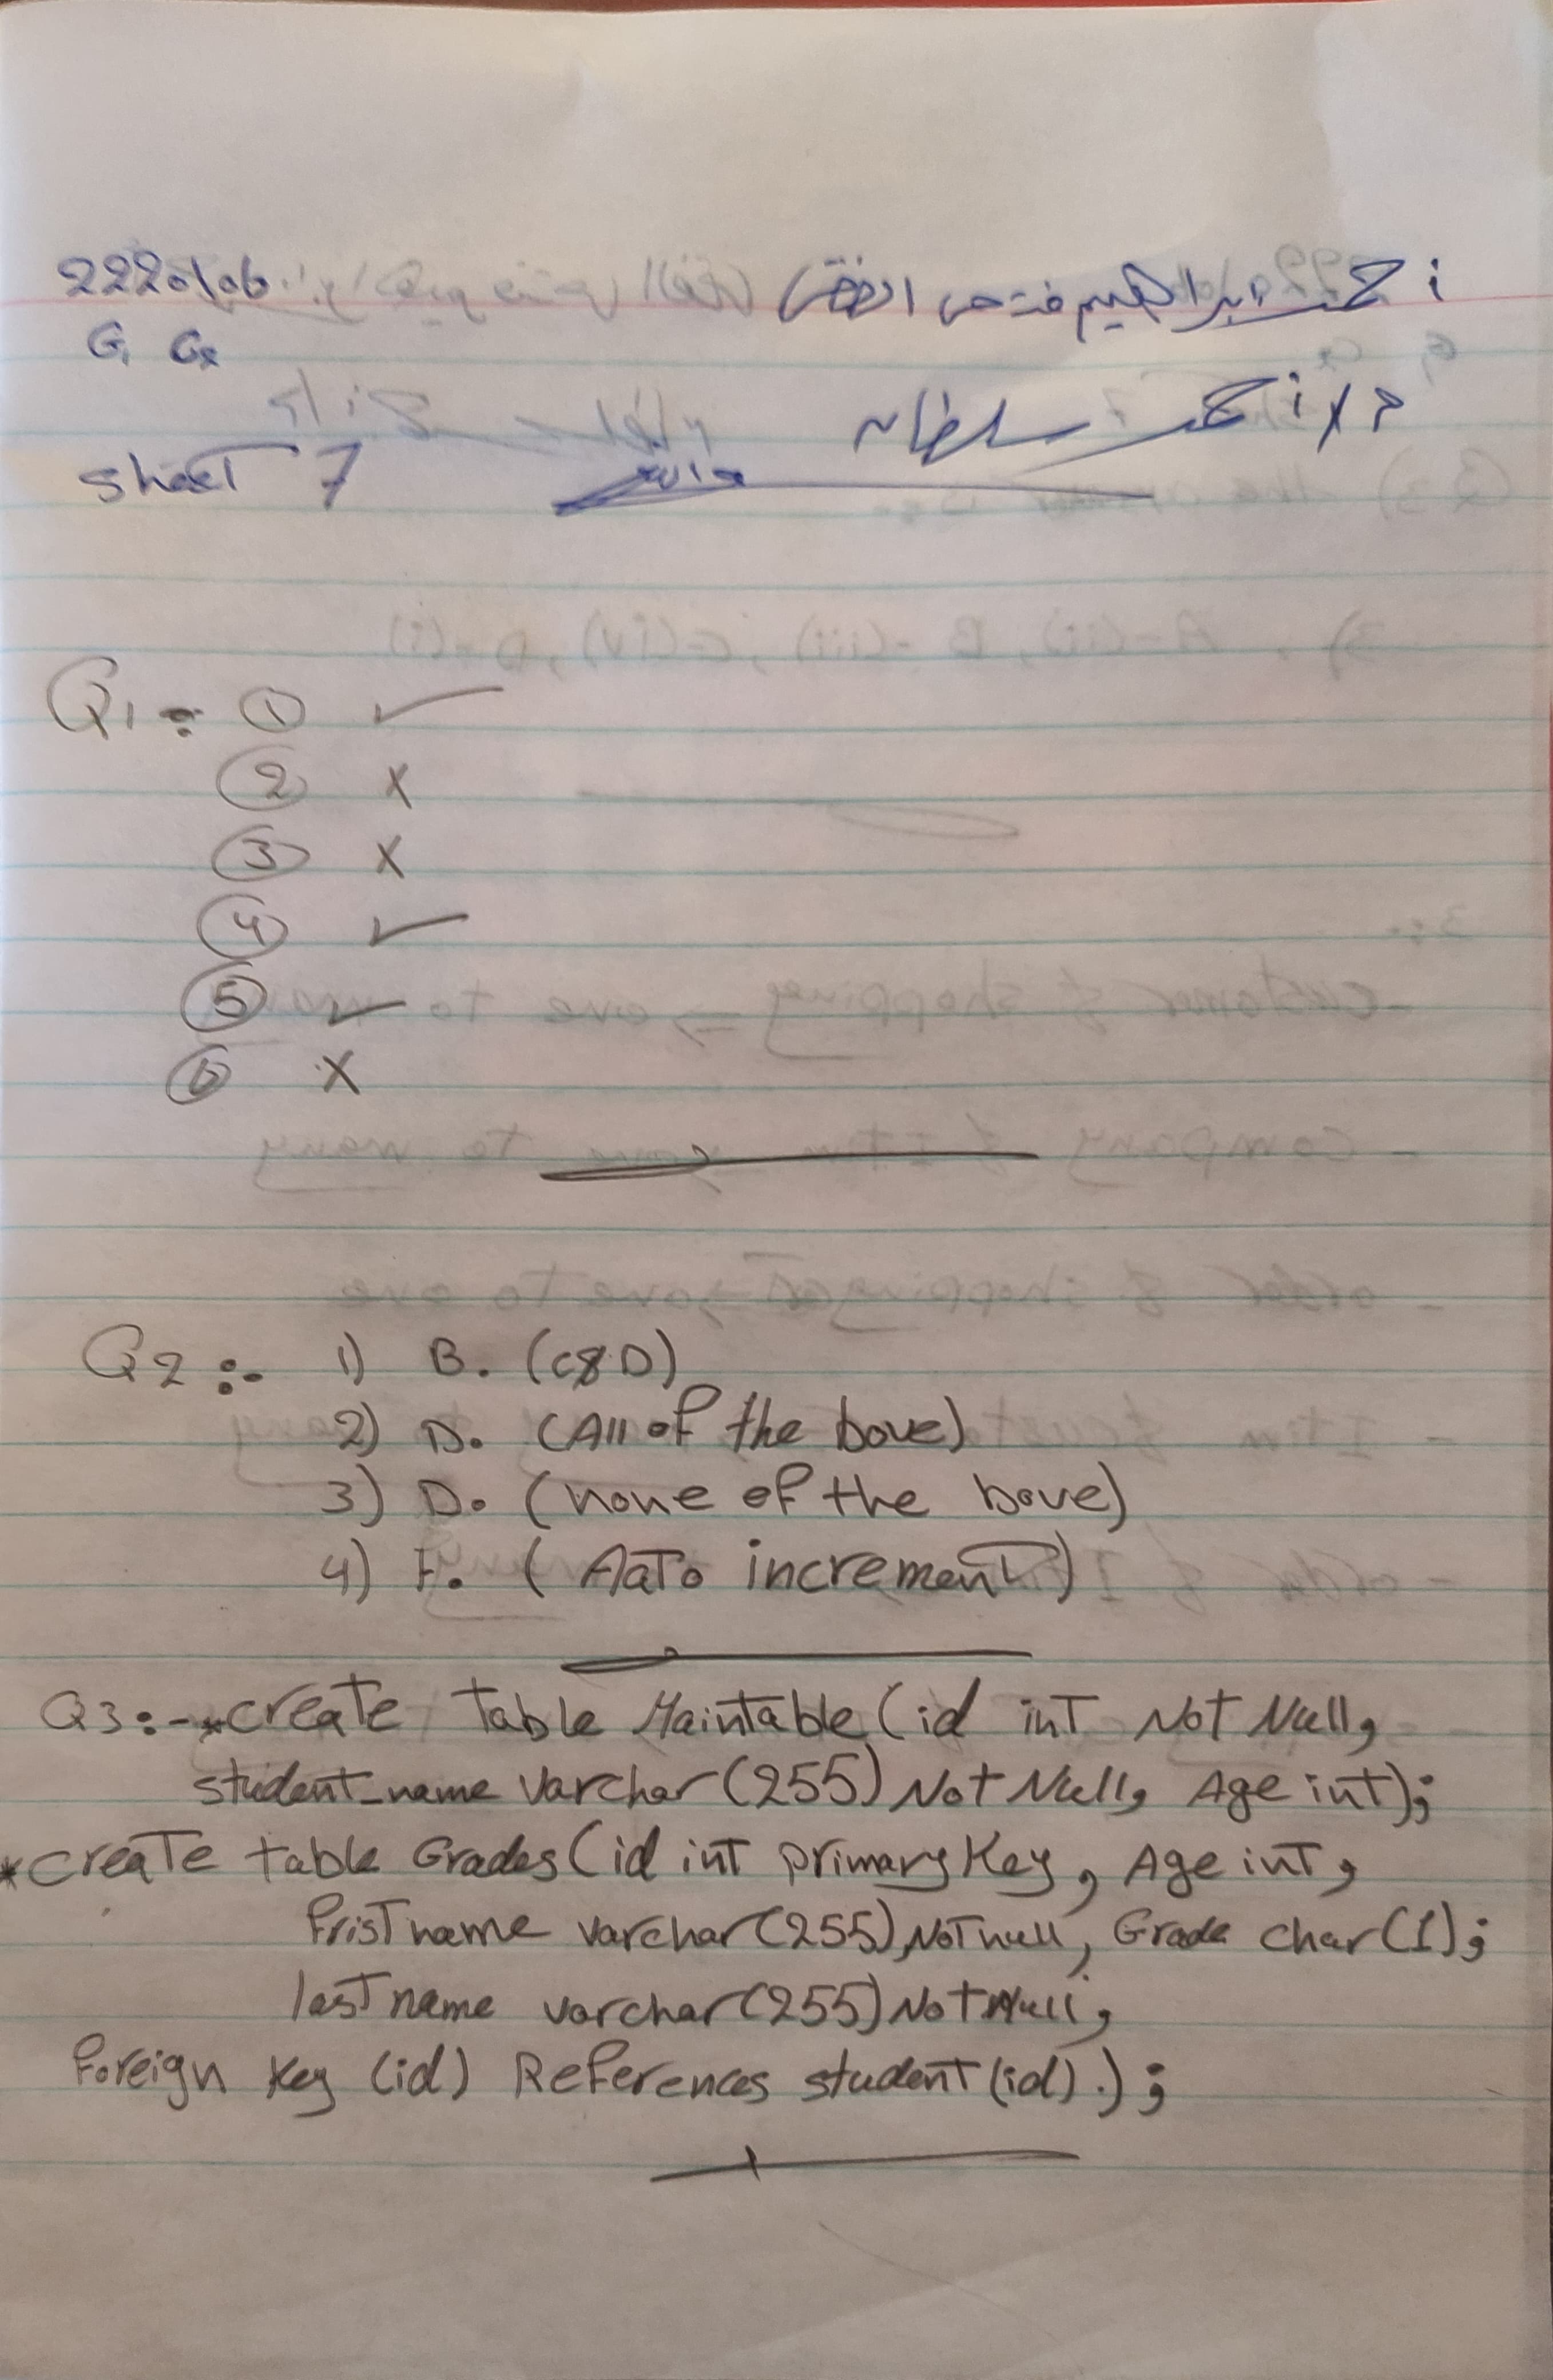 22220106 احمد ابراهيم فتحى الفقى
G1 C2
م / احمد سلطان
sheet 7
Q1 :- ① ✓
② X
③ X
④ ✓
⑤ ✓
⑥ X
Q2 :- 1) B. (C & D)
2) D. (All of the bove)
3) D. (none of the bove)
4) F. ( Aato increment)
Q3 :- * create table Maintable (id int Not Null,
student_name varchar (255) Not Null, Age int);
* create table Grades (id int primary Key, Age int,
Fristname varchar (255) Not null, Grade char (1);
lastname varchar (255) Not Null,
Foreign Key (id) References student (id).);